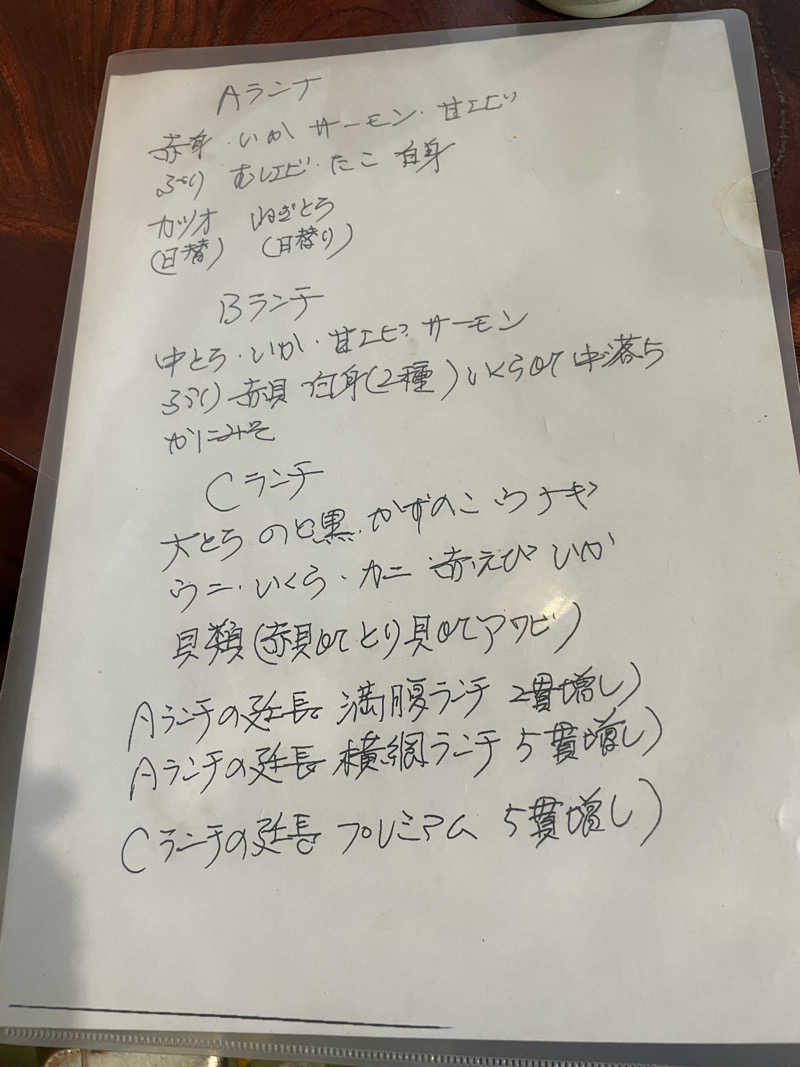 Aランチ
赤身・いか サーモン・甘エビ
ぶり むしエビ・たこ 白身
カツオ ねぎとろ
(日替) (日替り)
Bランチ
中とろ・いか・甘エビ サーモン
ぶり 赤貝 白身(2種) いくらor中落ち
かにみそ
Cランチ
大とろ のど黒・かずのこ ウナギ
ウニ・いくら・カニ 赤えび いか
貝類(赤貝orとり貝orアワビ)
Aランチの延長 満腹ランチ 2貫増し)
Aランチの延長 横綱ランチ 5貫増し)
Cランチの延長 プレミアム 5貫増し)